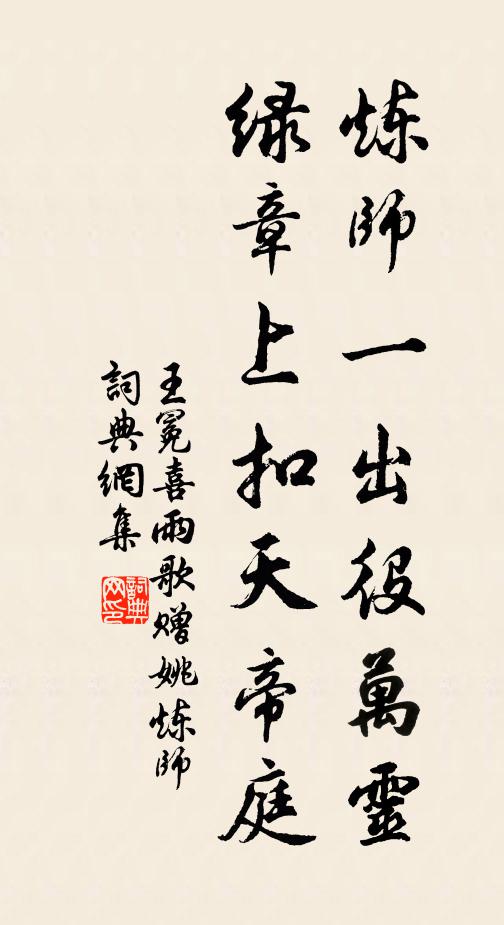 炼師一出役萬靈
緑章上扣天帝庭
王冕喜雨歌赠姚炼師
詞典網集
詞典网印